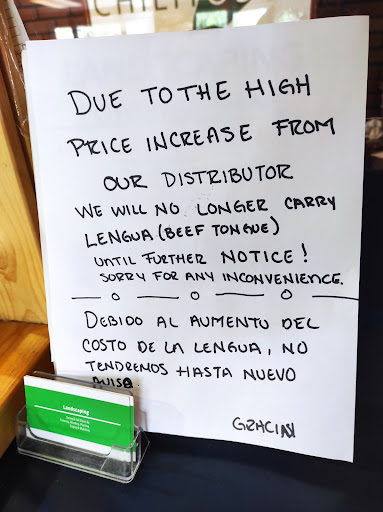 DUE TO THE HIGH
PRICE INCREASE FROM
OUR DISTRIBUTOR
WE WILL NO LONGER CARRY
LENGUA (BEEF TONGUE)
UNTIL FURTHER NOTICE!
SORRY FOR ANY INCONVENIENCE.
DEBIDO AL AUMENTO DEL
COSTO DE LA LENGUA, NO
TENDREMOS HASTA NUEVO
AVISO.
GRACIAS
Landscaping